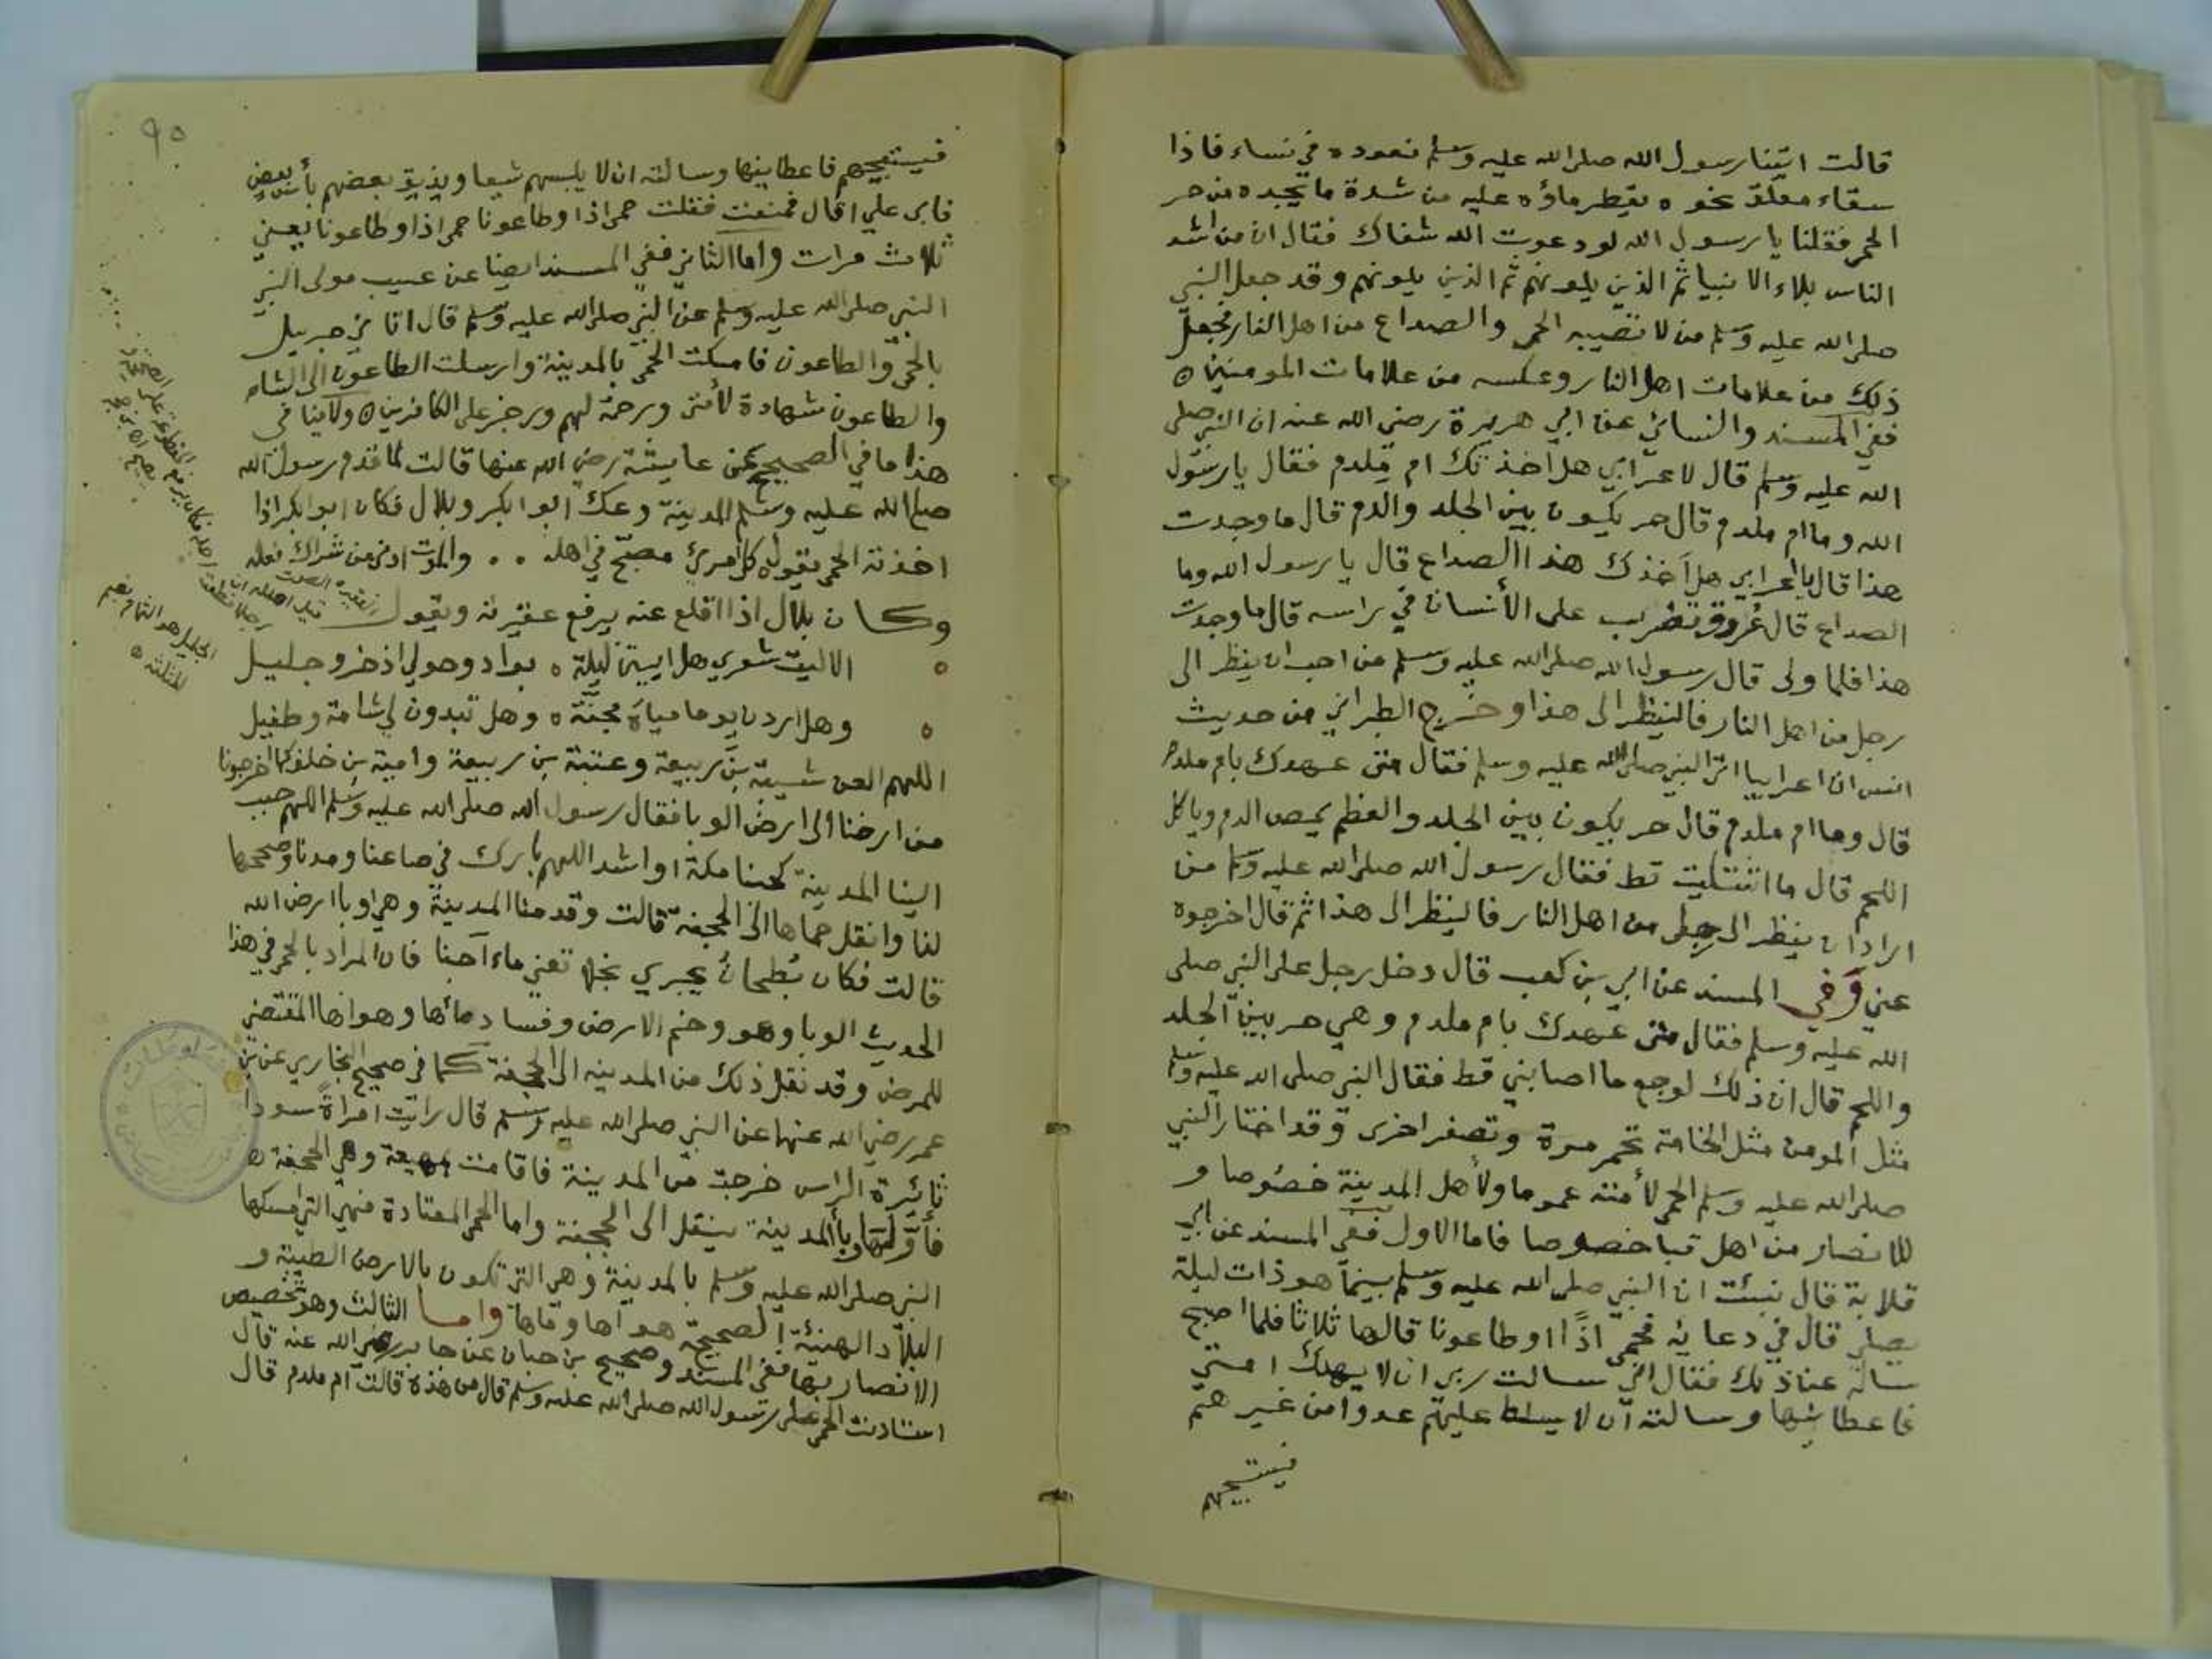 قالت اتينا رسول الله صلى الله عليه وسلم نعوده في نساء فاذا
سقاء معلق نحوه يقطر ماؤه عليه من شدة ما يجده من حر
الحمى فقلنا يا رسول الله لو دعوت الله شفاك فقال ان من اشد
الناس بلاء الانبيا ثم الذين يلونهم ثم الذين يلونهم وقد جعل النبي
صلى الله عليه وسلم من لا تصيبه الحمى والصداع من اهل النار فجعل
ذلك من علامات اهل النار وعكسه من علامات المومنين ه
ففي المسند والنسائي عن ابي هريرة رضي الله عنه ان النبي صلى
الله عليه وسلم قال لاعرابي هل اخذتك ام ملدم فقال يا رسول
الله وما ام ملدم قال حر يكون بين الجلد والدم قال ما وجدت
هذا قال يا اعرابي هل أخذك هذا الصداع قال يا رسول الله وما
الصداع قال عُروق تضرب على الأنسان في راسه قال ما وجدت
هذا فلما ولى قال رسول الله صلى الله عليه وسلم من احب ان ينظر الى
رجل من اهل النار فالينظر الى هذا وخرج الطبراني من حديث
انس ان اعرابيا اتى النبي صلى الله عليه وسلم فقال متى عهدك بام ملدم
قال وما ام ملدم قال حر يكون بين الجلد والعظم يمص الدم وياكل
اللحم قال ما اشتكيت قط فقال رسول الله صلى الله عليه وسلم من
اراد ان ينظر الى رجل من اهل النار فالينظر الى هذا ثم قال اخرجوه
عني وفي المسند عن ابي بن كعب قال دخل رجل على النبي صلى
الله عليه وسلم فقال متى عهدك بام ملدم وهي حر بين الجلد
واللحم قال ان ذلك لوجع ما اصابني قط فقال النبي صلى الله عليه وسلم
مثل المومن مثل الخامة تحمر مرة وتصفر اخرى وقد اختار النبي
صلى الله عليه وسلم الحمى لأمته عموما ولأهل المدينة خصوصا و
للانصار من اهل قبا خصوصا فاما الاول ففي المسند عن ابي
قلابة قال نبئت ان النبي صلى الله عليه وسلم بينما هو ذات ليلة
يصلي قال في دعايه فحمى اذًا او طاعونا قالها ثلاثا فلما اصبح
ساله عن ذلك فقال اني سالت ربي ان لا يهلك امتي
فاعطانيها وسالته أن لا يسلط عليهم عدوا من غيرهم
فيستبيحهم
٩٥
فيستبيحهم فاعطانيها وسالته ان لا يلبسهم شيعا ويذيق بعضهم بأس بعض
فابى علي او قال فمنعت فقلت حمى اذا او طاعونا حمى اذا او طاعونا يعني
ثلاث مرات واما الثاني ففي المسند ايضا عن عسيب مولى النبي
النبي صلى الله عليه وسلم عن النبي صلى الله عليه وسلم قال اتاني جبريل
بالحمى والطاعون فامسكت الحمى بالمدينة وارسلت الطاعون الى الشام
والطاعون شهادة لأمتي ورحمة لهم ورجز على الكافرين ه ولا ينافي
هذا ما في الصحيح عن عايشة رضي الله عنها قالت لما قدم رسول الله
صلى الله عليه وسلم المدينة وعك ابو بكر وبلال فكان ابو بكر اذا
اخذته الحمى يقول كل امرئ مصبح في اهله .. والموت ادنى من شراك نعله
وكان بلال اذا اقلع عنه يرفع عقيرته ويقول
الا ليت شعري هل ابيتن ليلة ه بواد وحولي اذخر وجليل
وهل اردن يوما مياه مجنّة ه وهل تبدون لي شامة وطفيل
اللهم العن شيبة بن ربيعة وعتبة بن ربيعة وامية بن خلف كما اخرجونا
من ارضنا الى ارض الوبا فقال رسول الله صلى الله عليه وسلم اللهم حبب
الينا المدينة كحبنا مكة او اشد اللهم بارك في صاعنا ومدنا وصححها
لنا وانقل حماها الى الجحفة قالت وقدمنا المدينة وهي اوبا ارض الله
قالت فكان بُطحان يجري نجلا تعني ماء آجنا فان المراد بالحمى في هذا
الحديث الوبا وهو وخم الارض وفساد مائها وهواها المقتضي
للمرض وقد نقل ذلك من المدينه الى الجحفة كما في صحيح البخاري عن بن
عمر رضي الله عنهما عن النبي صلى الله عليه وسلم قال رائت امراة سودا
ثائرة الراس خرجت من المدينة فاقامت بمهيعة وهي الجحفة ه
فأولتها وبأ المدينة ينقل الى الجحفة واما الحمى المعتادة فهي التي امسكها
النبي صلى الله عليه وسلم بالمدينة وهي التي تكون بالارض الطيبة و
البلاد الهنيئة الصحيحة هواها وماها واما الثالث وهو تخصيص
الانصار بها ففي المسند وصحيح بن حبان عن جابر رضي الله عنه قال
استاذنت الحمى على رسول الله صلى الله عليه وسلم قال من هذه قالت أم ملدم قال
الجليل هو الثمام